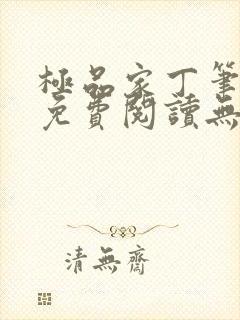 極品家丁筆
免費閱讀無
清無齋